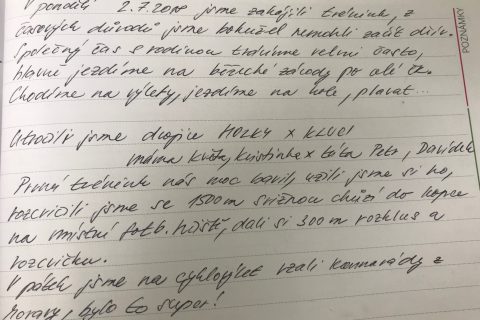 V pondělí 2.7. jsme zahájili trénink, z
časových důvodů jsme bohužel nemohli začít dřív.
Společný čas s rodinou trávíme velmi často,
hlavně jezdíme na běžecké závody po celé ČR.
Chodíme na výlety, jezdíme na kole, plavat...
Utvořili jsme dvojice HOLKY X KLUCI
máma Květa, Kristinka x táta Petr, Davídek
První trénink nás moc bavil, užili jsme si ho,
rozcvičili jsme se 1500m svižnou chůzí do kopce
na místní fotb. hřiště, dali si 300m rozklus a
rozcvičku.
V pátek jsme na cyklovýlet vzali kamarády z
Moravy, bylo to super!
POZNÁMKY